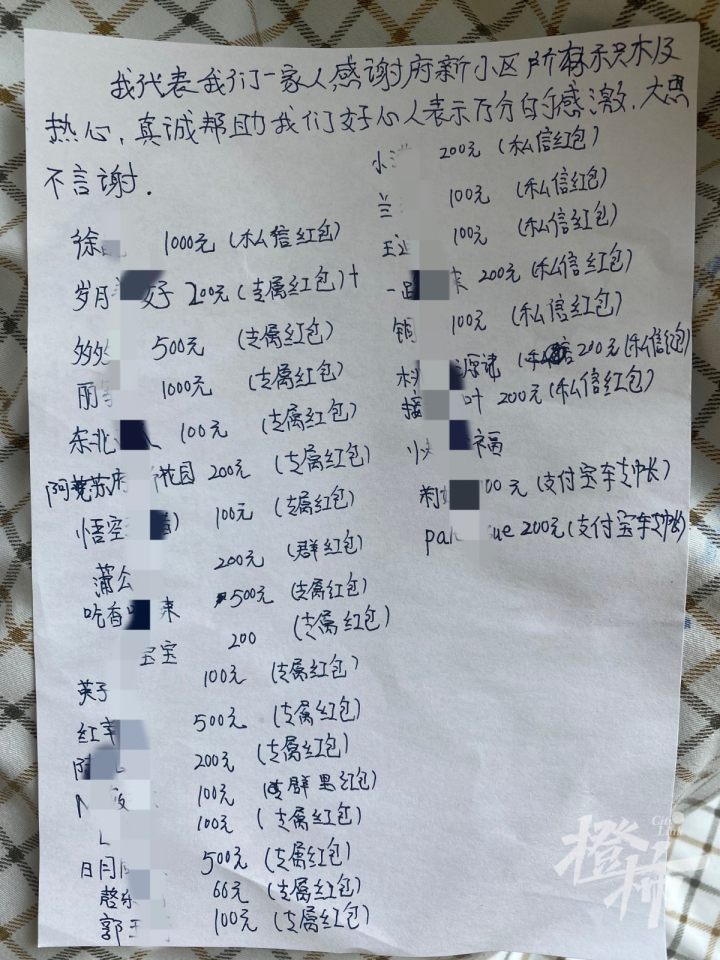 我代表我们一家人感谢府新小区所有积极
热心,真诚帮助我们好心人表示万分的感激,大恩
不言谢.
徐 1000元(私信红包)
岁月 好 200元(专属红包)
500元 (专属红包)
丽 1000元 (专属红包)
东北 100元 (专属红包)
阿 苏府 花园 200元 (专属红包)
悟空 100元 (专属红包)
蒲公 200元 (群红包)
吃香 来 500元 (专属红包)
宝宝 200 (专属红包)
英子 100元 (专属红包)
红 500元 (专属红包)
陈 200元 (专属红包)
100元 (群里红包)
L 100元 (专属红包)
日月 500元 (专属红包)
66元 (专属红包)
郭 100元 (专属红包)
小 200元(私信红包)
兰 100元 (私信红包)
100元 (私信红包)
一 来 200元(私信红包)
铜 100元 (私信红包)
200元(私信红包)
接 叶 200元(私信红包)
福
00元(支付宝车支帐)
pa ue 200元(支付宝车支帐)
橙柿